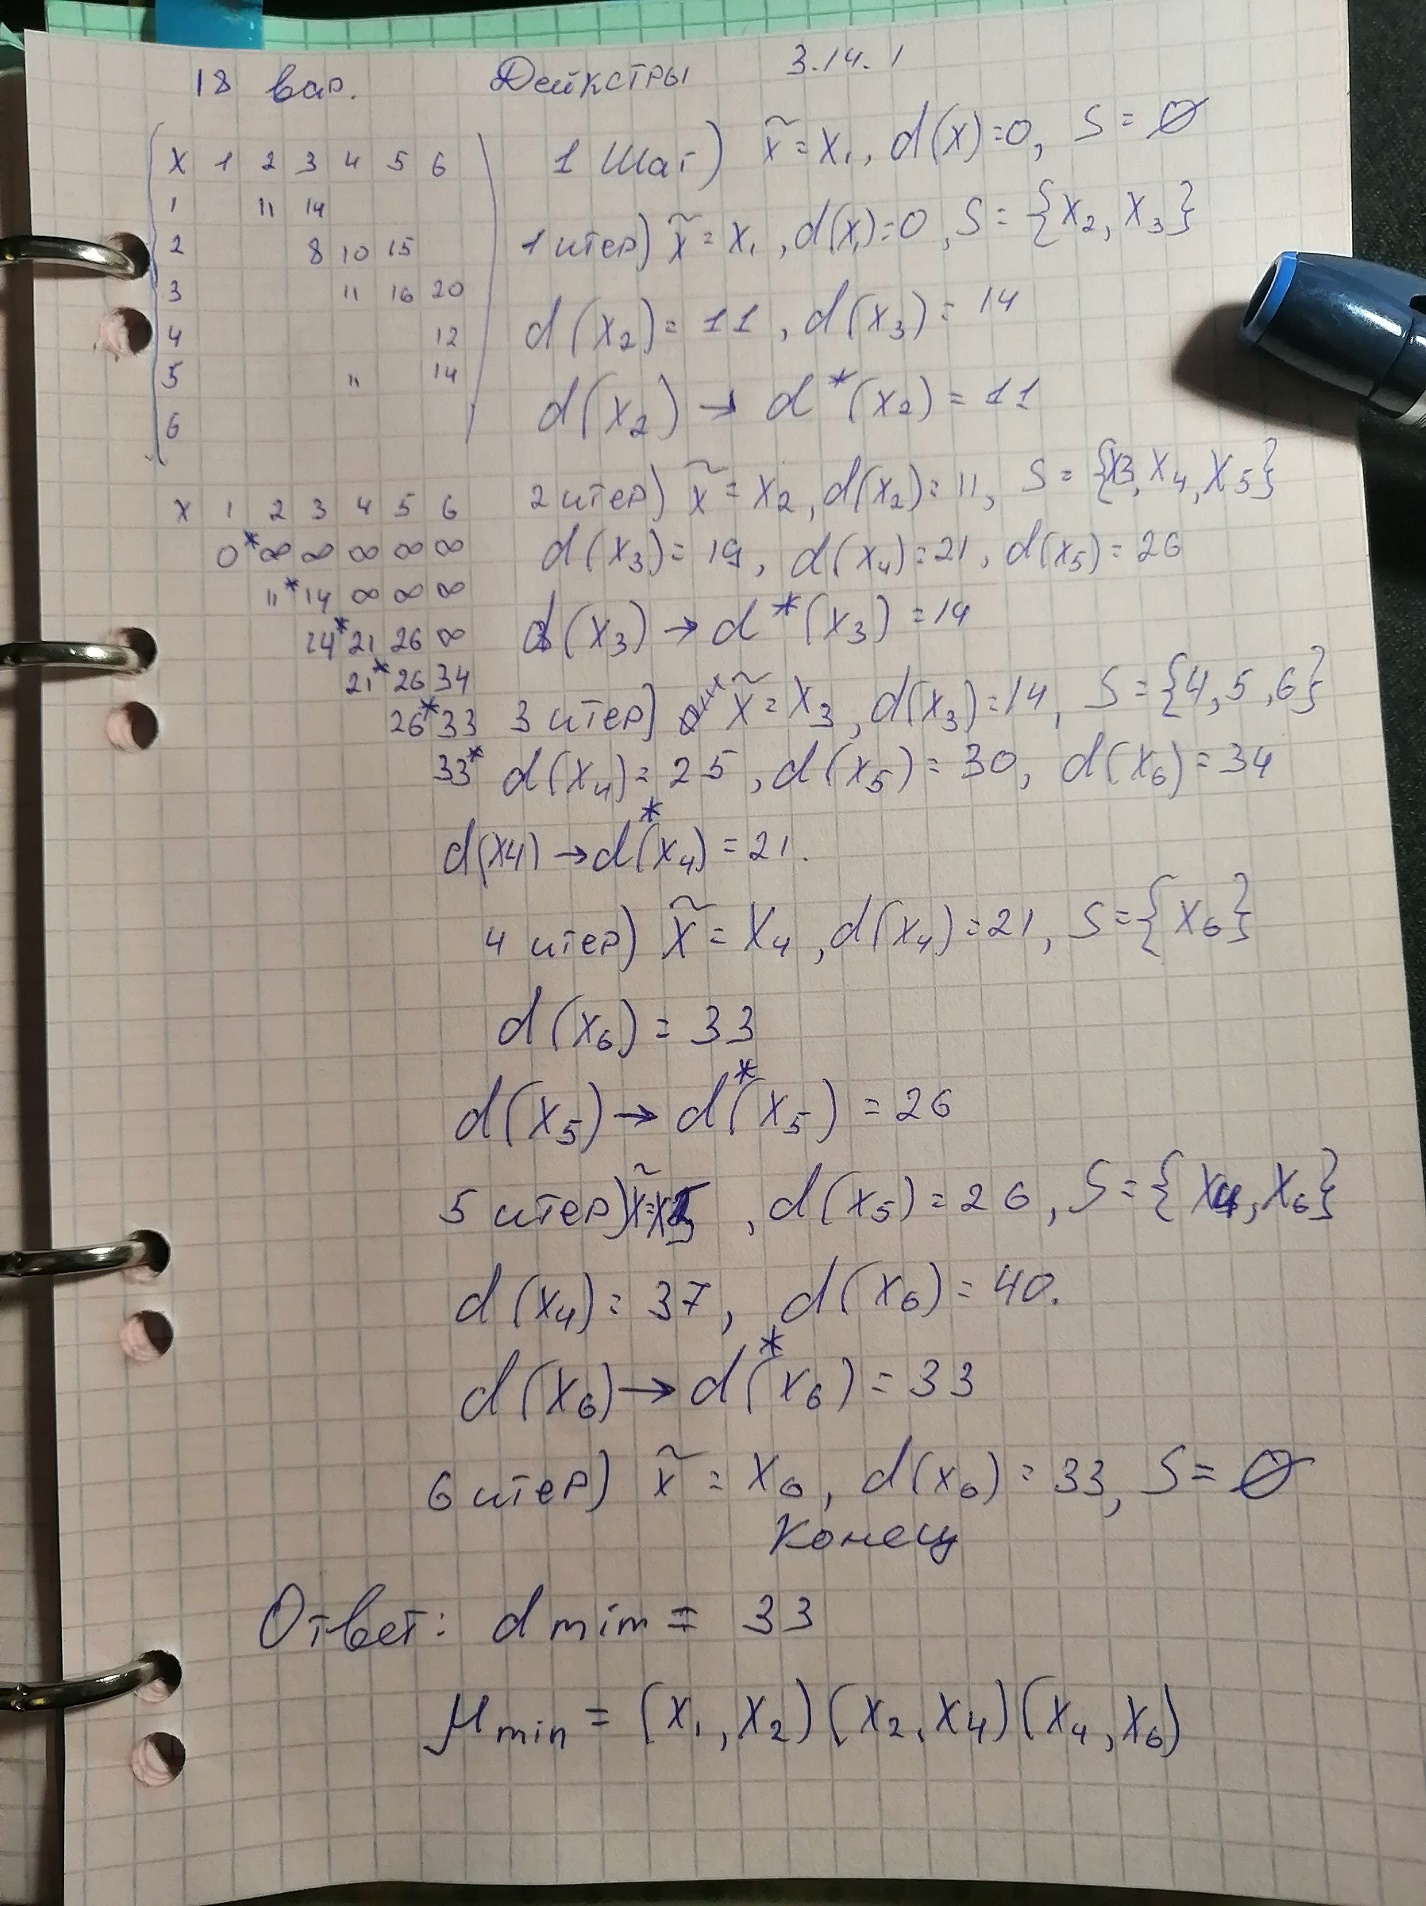 18 вар. Дейкстры 3.14.1
X 1 2 3 4 5 6
1 11 14
2 8 10 15
3 11 16 20
4 12
5 11 14
6
X 1 2 3 4 5 6
0* ∞ ∞ ∞ ∞ ∞
11* 14 ∞ ∞ ∞
14* 21 26 ∞
21* 26 34
26* 33
33*
1 шаг) x̃ = x₁, d(x)=0, S = ∅
1 итер) x̃ = x₁, d(x₁)=0, S = {x₂, x₃}
d(x₂) = 11, d(x₃) = 14
d(x₂) → d*(x₂) = 11
2 итер) x̃ = x₂, d(x₂) = 11, S = {x3, x₄, x₅}
d(x₃) = 19, d(x₄) = 21, d(x₅) = 26
d(x₃) → d*(x₃) = 14
3 итер) x̃ = x₃, d(x₃) = 14, S = {4, 5, 6}
d(x₄) = 25, d(x₅) = 30, d(x₆) = 34
d(x4) → d*(x₄) = 21.
4 итер) x̃ = x₄, d(x₄) = 21, S = {x₆}
d(x₆) = 33
d(x₅) → d*(x₅) = 26
5 итер) x̃ = x5, d(x₅) = 26, S = {x₄, x₆}
d(x₄) = 37, d(x₆) = 40.
d(x₆) → d*(x₆) = 33
6 итер) x̃ = x₆, d(x₆) = 33, S = ∅
Конец
Ответ: d min = 33
μ min = (x₁, x₂)(x₂, x₄)(x₄, x₆)